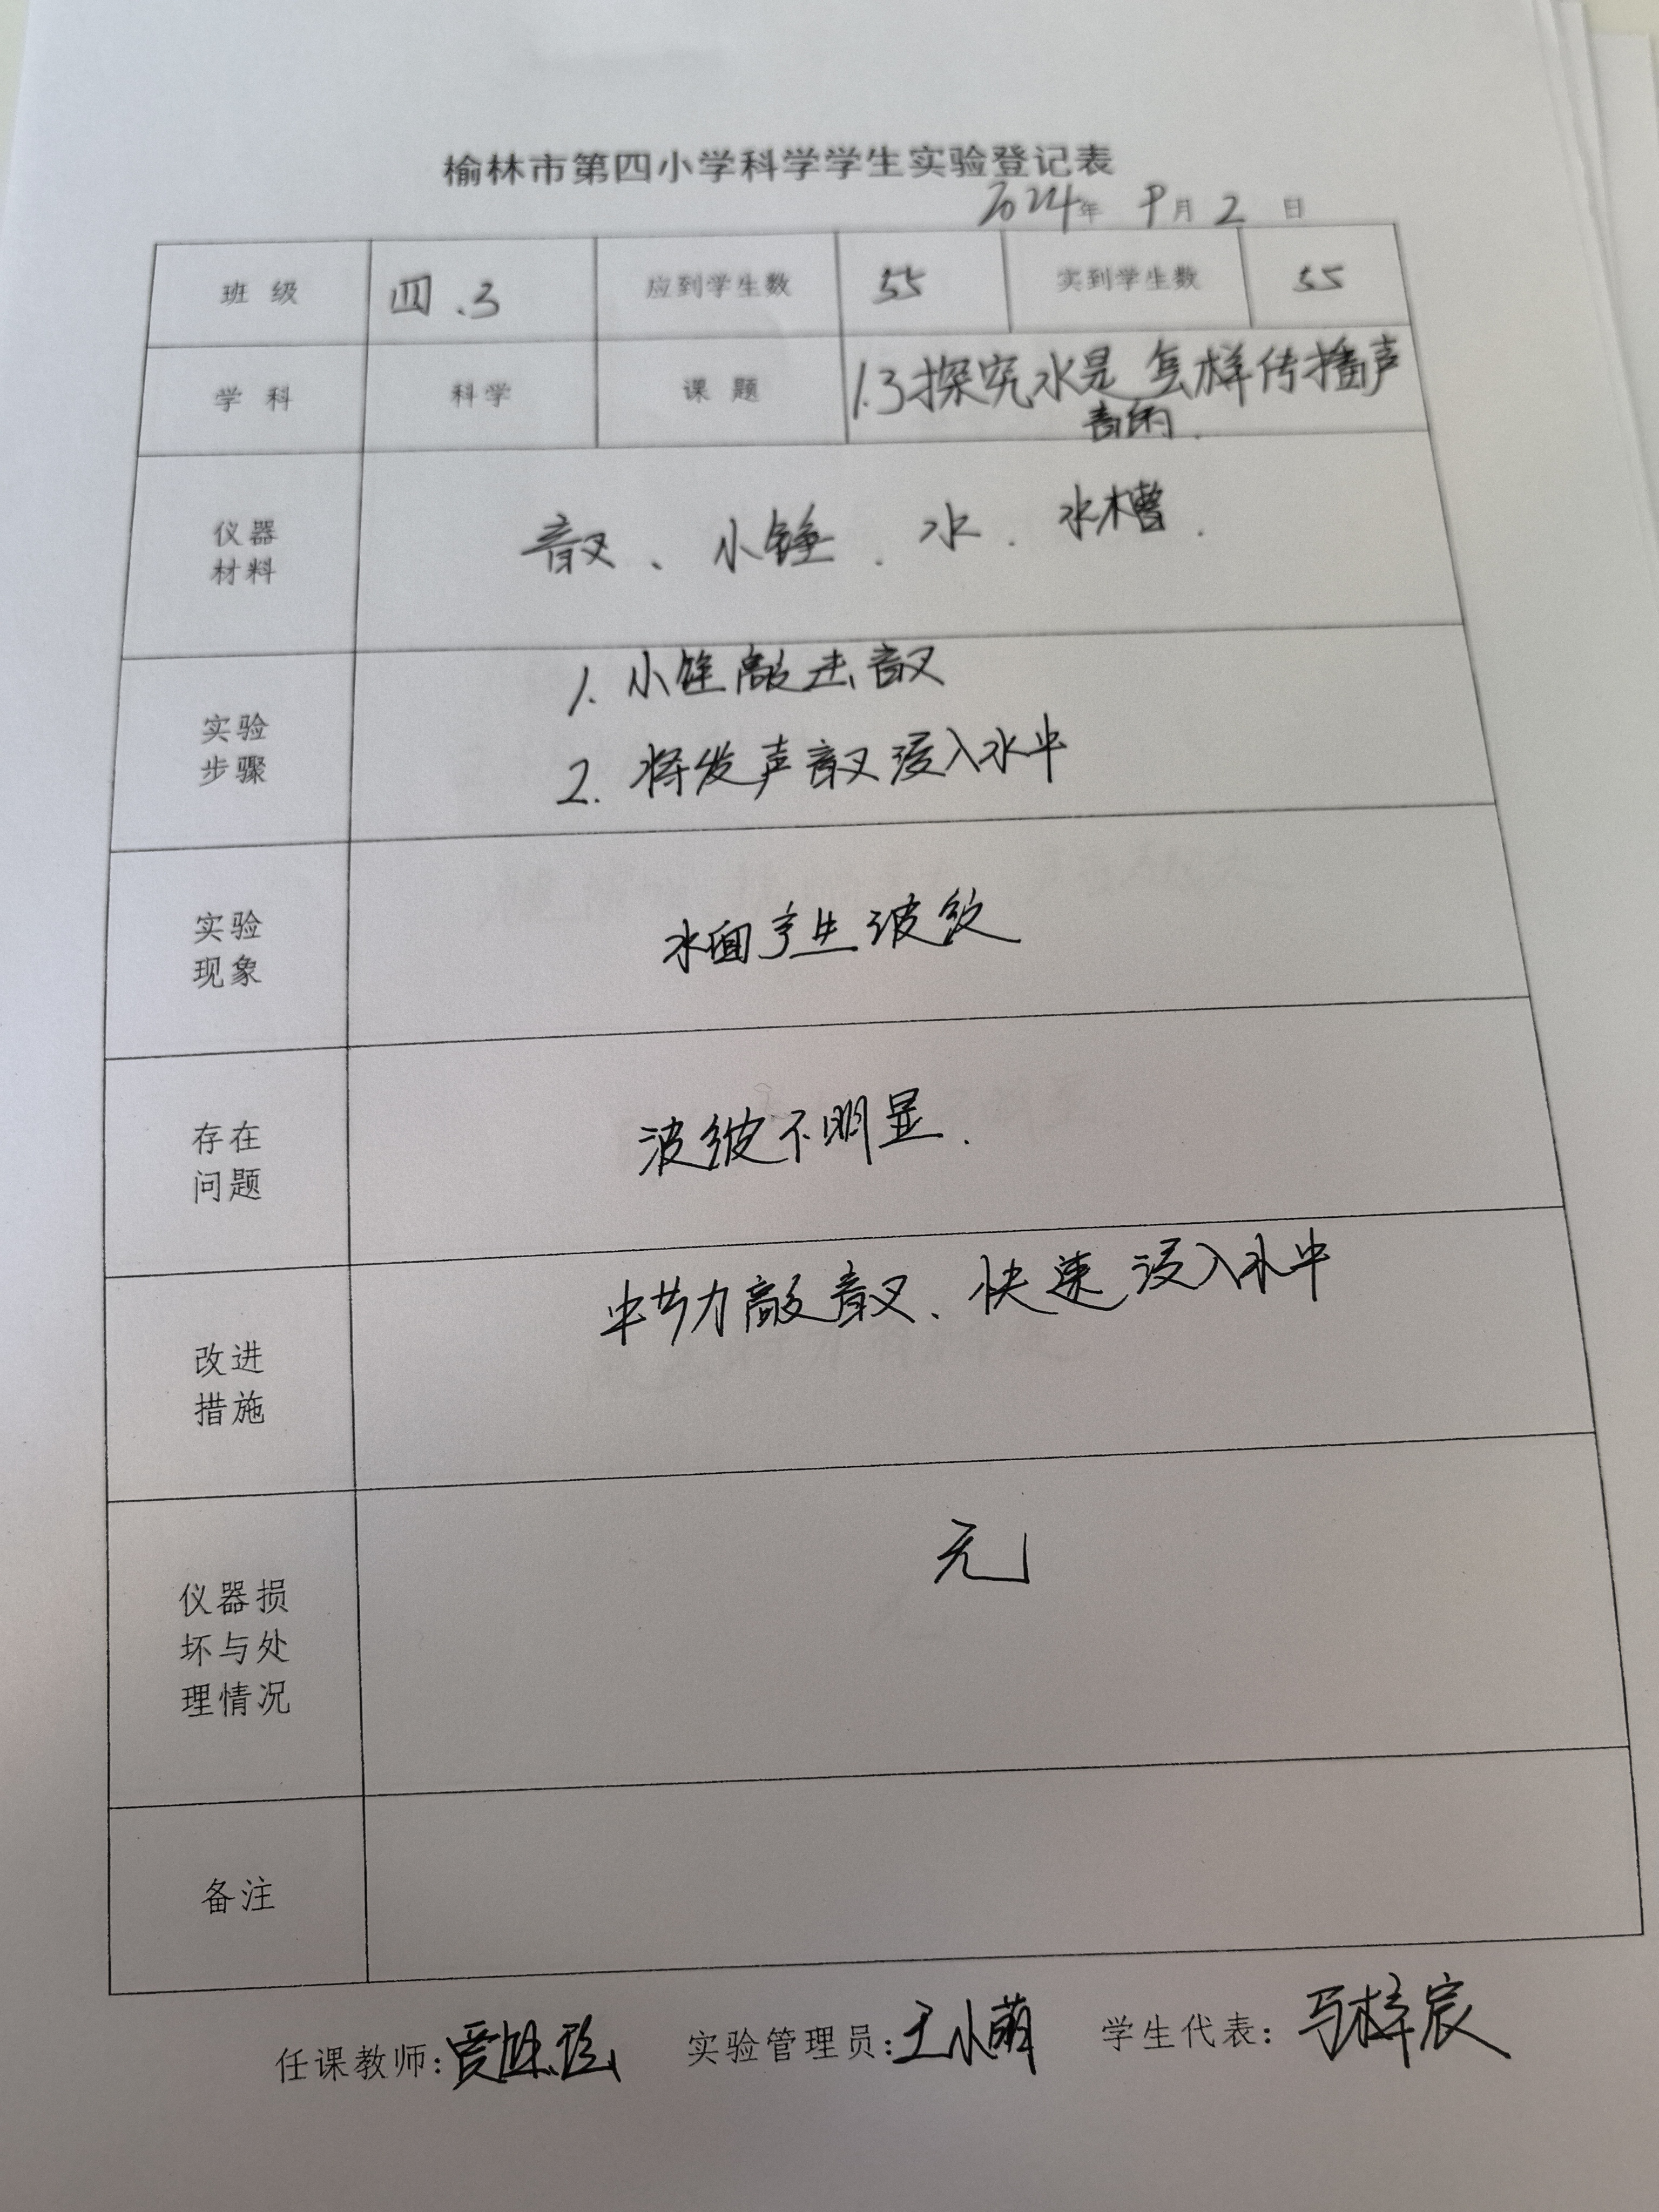 榆林市第四小学科学学生实验登记表
2024年 9月 2 日
班 级 四.3 应到学生数 55 实到学生数 55
学 科 科学 课 题 1.3探究水是怎样传播声
音的.
仪器
材料
音叉、小锤、水、水槽.
实验
步骤
1. 小锤敲击音叉
2. 将发声音叉浸入水中
实验
现象
水面产生波纹
存在
问题
波纹不明显.
改进
措施
敲音叉、快速浸入水中
仪器损
坏与处
理情况
无
备注
任课教师: 实验管理员:王小萌 学生代表:马梓宸